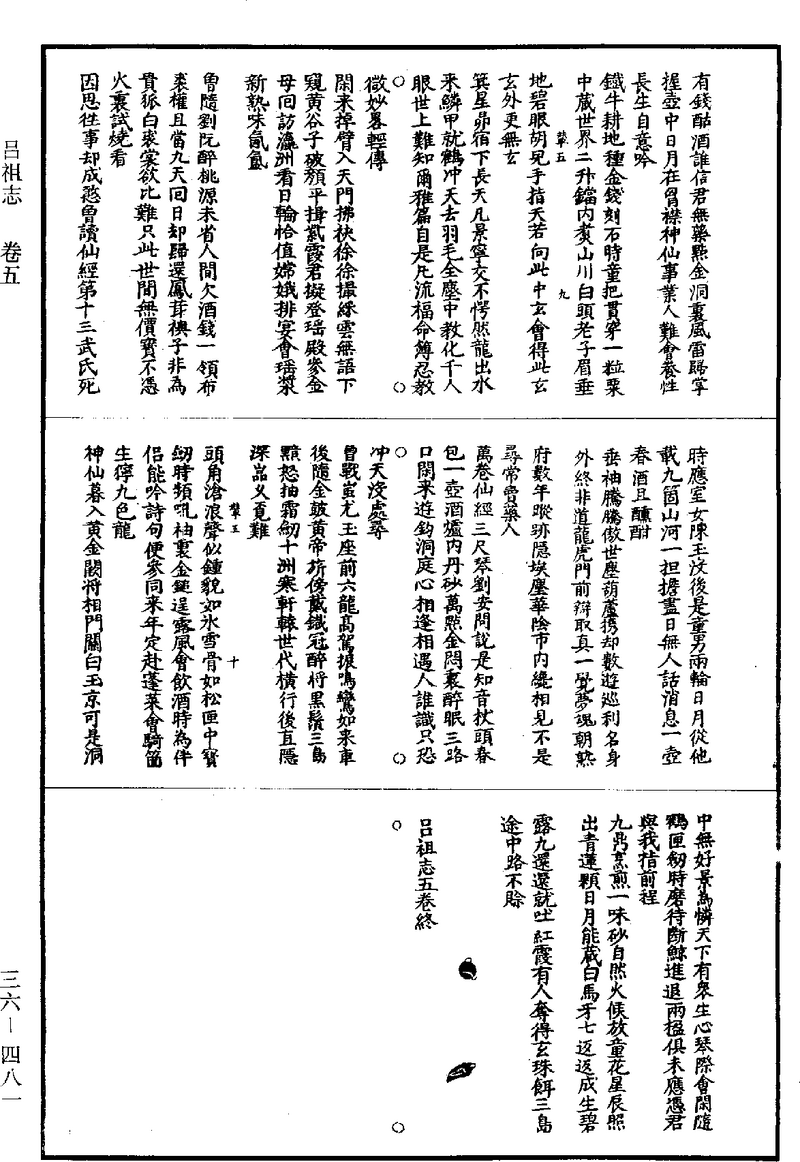 有錢酤酒誰信君無藥點金洞裏風雷歸掌
握壺中日月在胷襟神仙事業人難會養性
長生自意吟
鐵牛耕地種金錢刻石時童把貫穿一粒粟
中藏世界二升鐺内煑山川白頭老子眉垂
地碧眼胡兒手指天若向此中玄會得此玄
玄外更無玄
箕星昴宿下長天凡景寧交不愕然龍出水
来鱗甲就鶴冲天去羽毛全塵中教化千人
眼世上難知爾雅篇自是凡流福命簿忍教
微妙畧輕傳
閑来掉臂入天門拂袂徐徐撮綵雲無語下
窺黄谷子破顏平揖紫霞君擬登瑶殿參金
母囘訪瀛洲看日輪恰值嫦娥排宴會瑶漿
新熟味氤氲
曾隨劉阮醉桃源未省人間欠酒錢一領布
裘權且當九天囘日却歸還鳳茸襖子非為
貴狐白裘裳欲比難只此世間無價寶不憑
火裏試燒看
因思徃事却成憨曾讀仙經第十三武氏死
時應室女陳王沒後是童男兩輪日月從他
載九箇山河一担擔盡日無人話消息一壺
春酒且醺酣
垂袖騰騰傲世塵葫蘆携却數遊巡利名身
外終非道龍虎門前辯取真一覺夢魂朝熟
府數年蹤跡隱埃塵華陰市内纔相見不是
尋常賣藥人
萬卷仙經三尺琴劉安問說是知音杖頭春
包一壺酒爐内丹砂萬點金悶裏醉眠三路
口閑来遊釣洞庭心相逢相遇人誰識只恐
冲天沒處尋
曾戰蚩尤玉座前六龍高駕振鳴鸞如来車
後隨金鼓黄帝旂傍戴鐵冠醉捋黒鬚三島
黯怒抽霜劒十洲寒軒轅世代橫行後直隱
深嵓乂覓難
頭角滄浪聲似鍾貌如氷雪骨如松匣中寶
劒時頻吼袖裏金鎚逞露風會飲酒時為伴
侣能吟詩句便參同来年定赴蓬萊會騎箇
生獰九色龍
神仙暮入黄金闕將相門關白玉京可是洞
中無好景為憐天下有衆生心琴際會閑隨
鶴匣劒時磨待斷鯨進退兩楹俱未應憑君
與我指前程
九鼎烹煎一味砂自然火候放童花星辰照
出青蓮顆日月能藏白馬牙七返返成生碧
露九還還就吐紅霞有人奪得玄珠餌三島
途中路不賒
吕祖志五卷終
輦五 九
輦五 十
吕祖志 卷五
三六—四八一